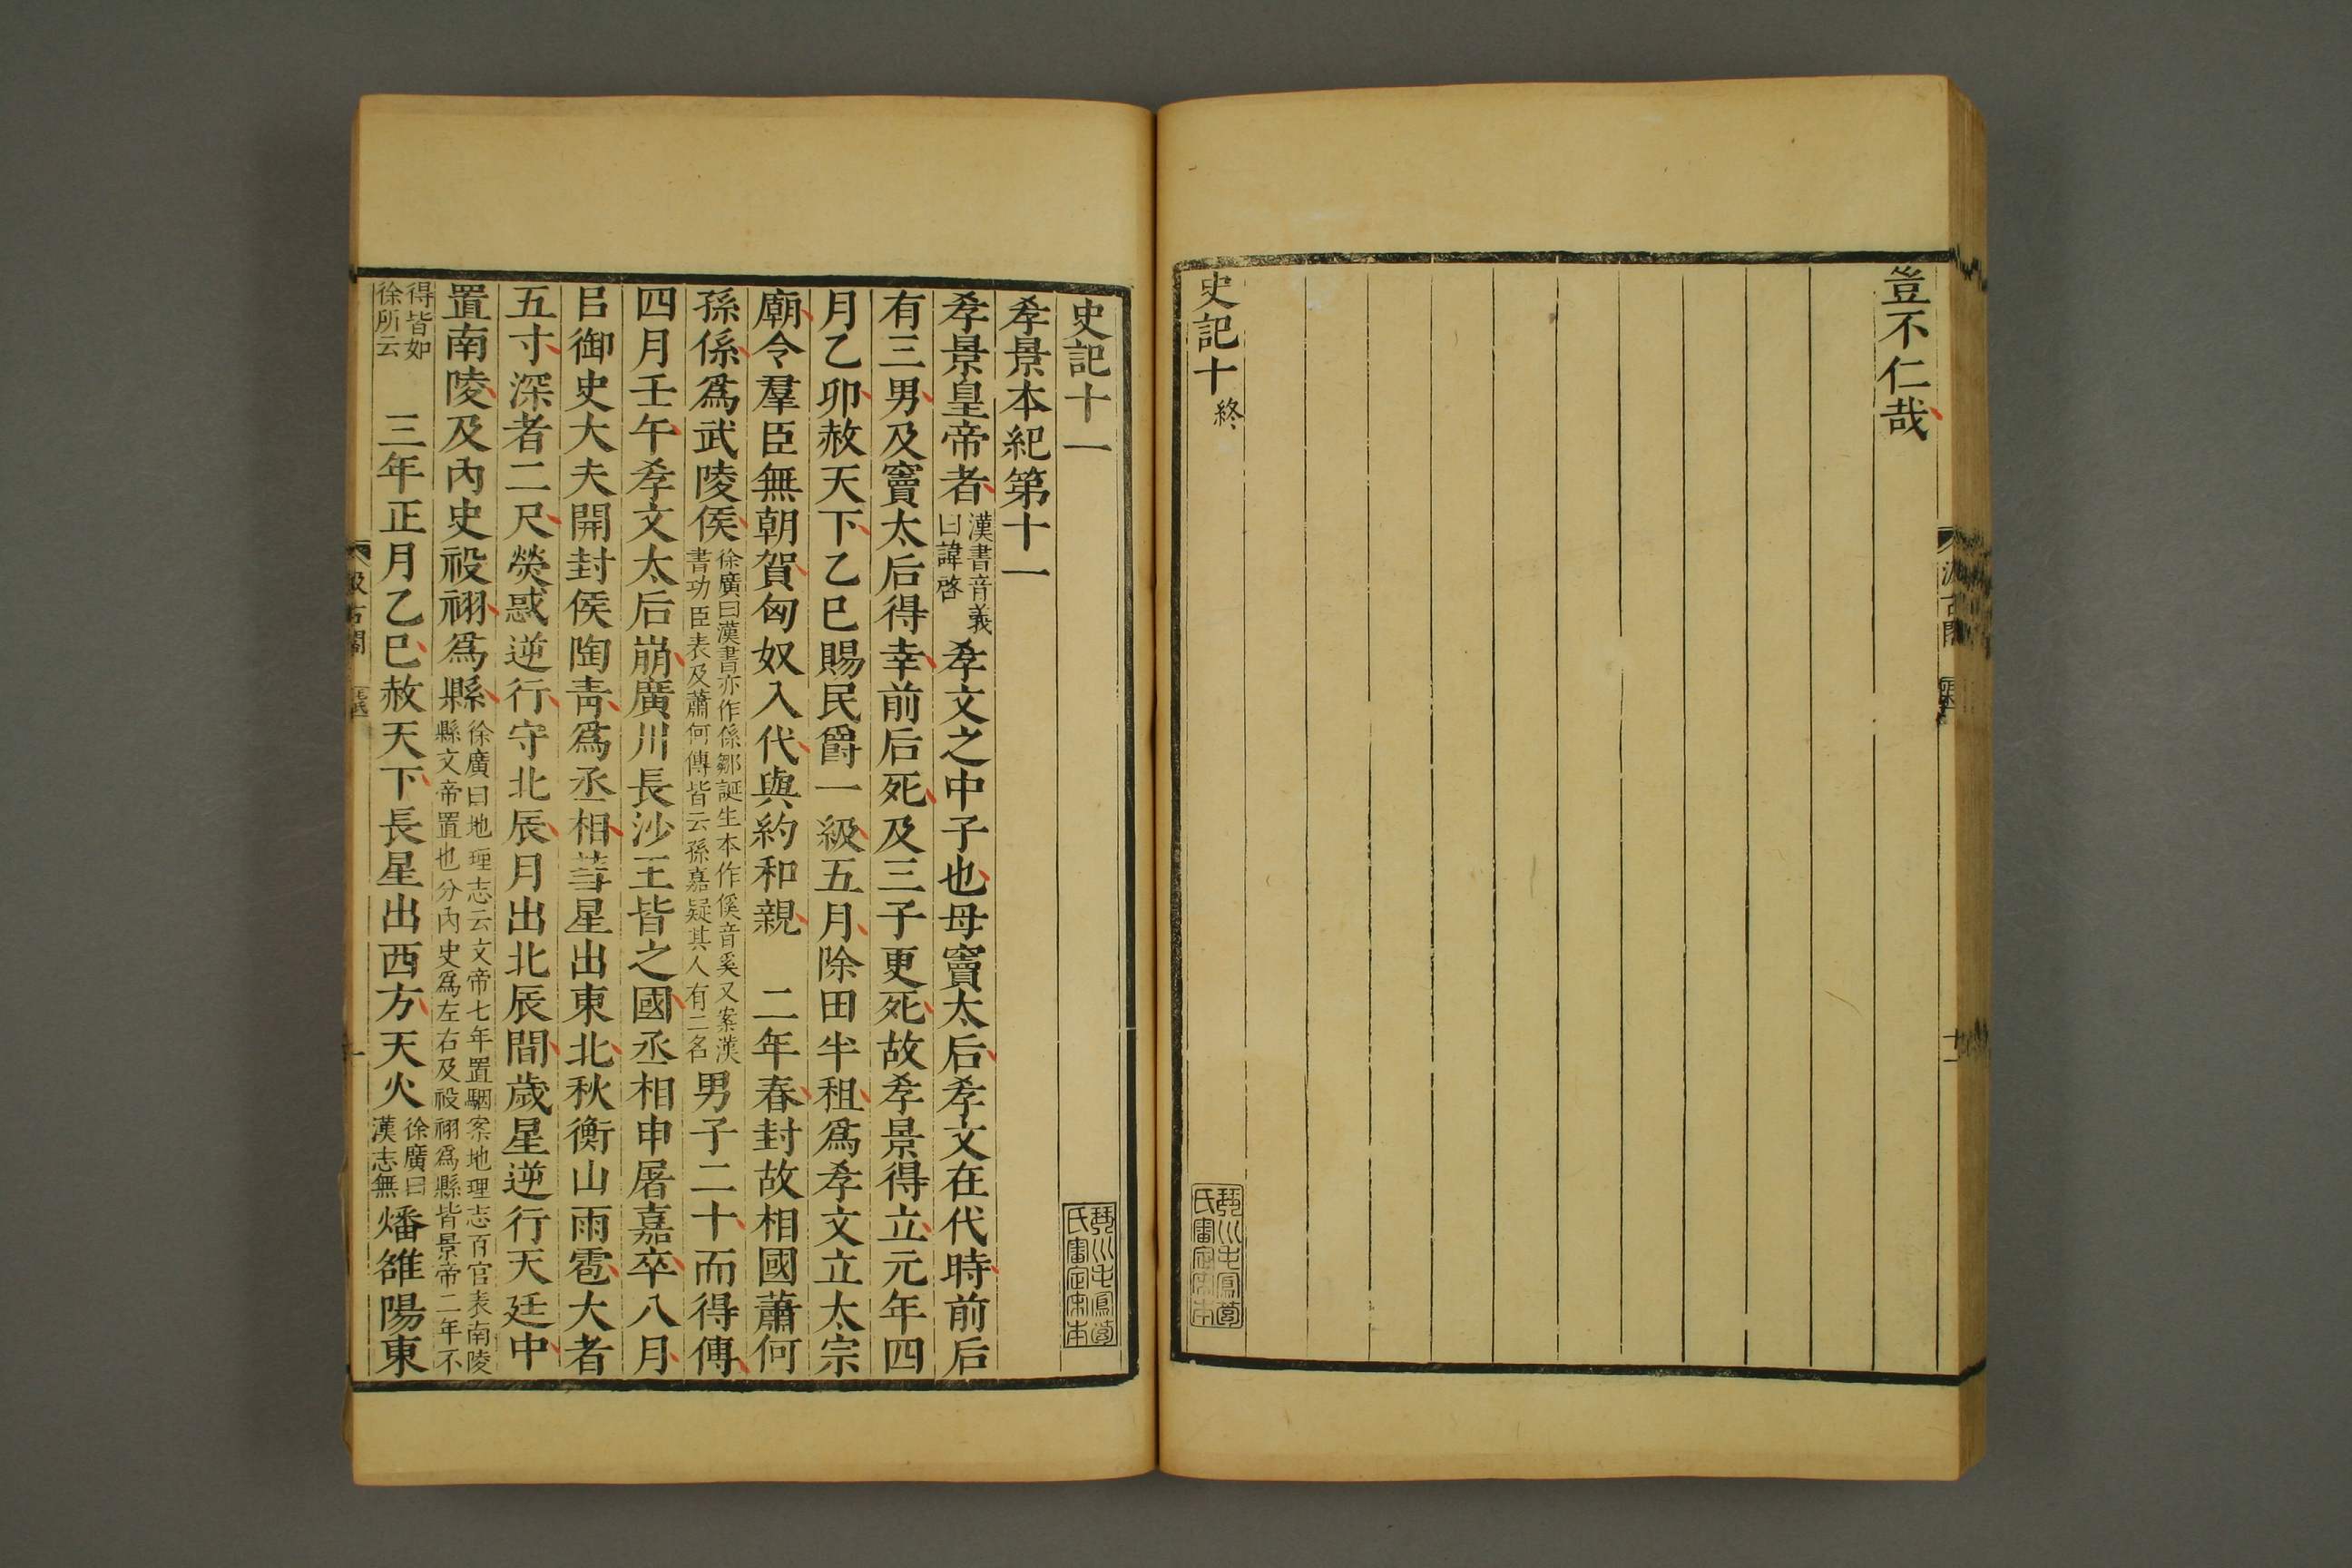 豈不仁哉
史記十終
汲古閣
十一
史記十一
孝景本紀第十一
孝景皇帝者漢書音義曰諱啓孝文之中子也母竇太后孝文在代時前后
有三男及竇太后得幸前后死及三子更死故孝景得立元年四
月乙卯赦天下乙巳賜民爵一級五月除田半租爲孝文立太宗
廟令羣臣無朝賀匈奴入代與約和親　二年春封故相國蕭何
孫係爲武陵侯徐廣曰漢書亦作係鄒誕生本作傒音奚又案漢書功臣表及蕭何傳皆云孫嘉疑其人有二名男子二十而得傅
四月壬午孝文太后崩廣川長沙王皆之國丞相申屠嘉卒八月
㠯御史大夫開封侯陶靑爲丞相彗星出東北秋衡山雨雹大者
五寸深者二尺熒惑逆行守北辰月出北辰間歲星逆行天廷中
置南陵及內史祋祤爲縣徐廣曰地理志云文帝七年置駰案地理志百官表南陵縣文帝置也分內史爲左右及祋祤爲縣皆景帝二年不
得皆如徐所云　三年正月乙巳赦天下長星出西方天火徐廣曰漢志無燔雒陽東
汲古閣